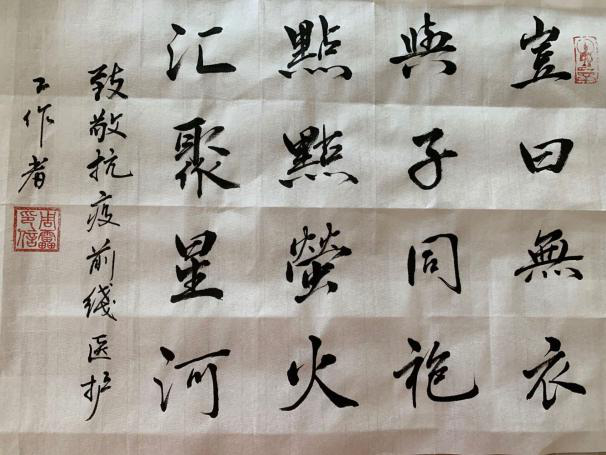 豈曰無衣
與子同袍
點點螢火
汇聚星河
致敬抗疫前线医护
工作者